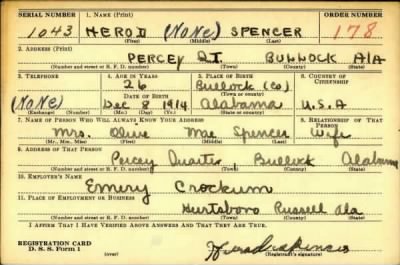 SERIAL NUMBER 1. NAME (Print) ORDER NUMBER
1043 HEROD (NONE) SPENCER 178
(First) (Middle) (Last)
2. ADDRESS (Print)
PERCEY QT. BULLOCK Ala
(Number and street or R. F. D. number) (Town) (County) (State)
3. TELEPHONE 4. AGE IN YEARS 5. PLACE OF BIRTH 6. COUNTRY OF CITIZENSHIP
26 Bullock (Co)
DATE OF BIRTH (Town or county)
(NONE) Dec 8 1914 Alabama U.S.A
(Mo.) (Day) (Yr.) (State or country)
7. NAME OF PERSON WHO WILL ALWAYS KNOW YOUR ADDRESS RELATIONSHIP OF THAT PERSON
Mrs. Olive Mae Spencer Wife
(Mr., Mrs., Miss) (First) (Middle) (Last)
9. ADDRESS OF THAT PERSON
Percey Quarter Bullock Alabama
(Number and street or R. F. D. number) (Town) (County) (State)
10. EMPLOYER'S NAME
Emery Crockum
11. PLACE OF EMPLOYMENT OR BUSINESS
Hurtsboro Russell Ala
(Number and street or R. F. D. number) (Town) (County) (State)
I AFFIRM THAT I HAVE VERIFIED ABOVE ANSWERS AND THAT THEY ARE TRUE.
REGISTRATION CARD
D. S. S. Form 1 (Registrant's signature)